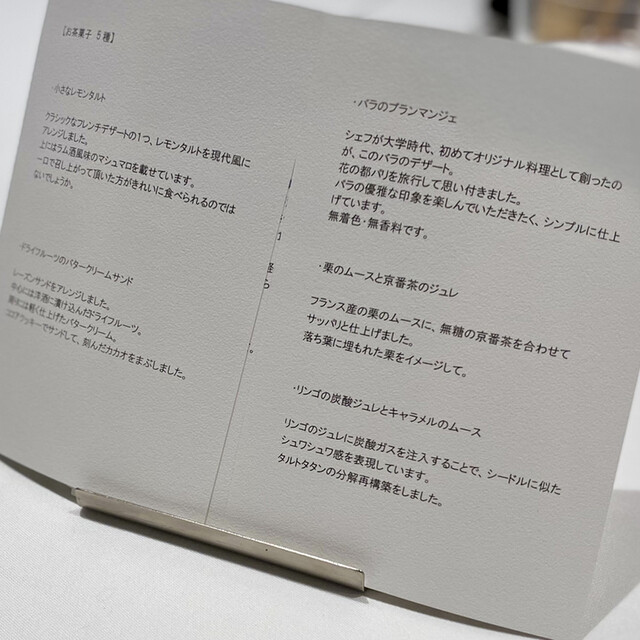 【お茶菓子 5種】
小さなレモンタルト
クラシックなフレンチデザートの1つ、レモンタルトを現代風に
アレンジしました。
上にはラム酒風味のマシュマロを載せています。
一口で召し上がって頂いた方がきれいに食べられるのでは
ないでしょうか。
ドライフルーツのバタークリームサンド
レーズンサンドをアレンジしました。
中心には洋酒に漬け込んだドライフルーツ。
軽く仕上げたバタークリーム。
ココアクッキーでサンドして、刻んだカカオをまぶしました。
・バラのブランマンジェ
シェフが大学時代、初めてオリジナル料理として創ったの
が、このバラのデザート。
花の都パリを旅行して思い付きました。
バラの優雅な印象を楽しんでいただきたく、シンプルに仕上
げています。
無着色・無香料です。
・栗のムースと京番茶のジュレ
フランス産の栗のムースに、無糖の京番茶を合わせて
サッパリと仕上げました。
落ち葉に埋もれた栗をイメージして。
・リンゴの炭酸ジュレとキャラメルのムース
リンゴのジュレに炭酸ガスを注入することで、シードルに似た
シュワシュワ感を表現しています。
タルトタタンの分解再構築をしました。